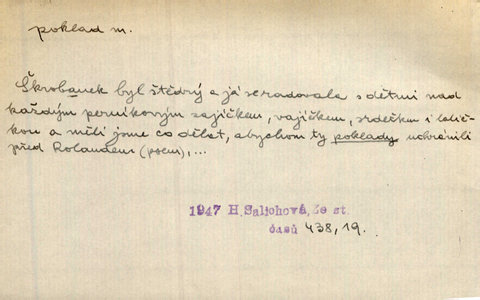 poklad m.
Škrobanek byl štědrý a já se radovala s dětmi nad
každým perníkovým zajíčkem, vajíčkem, srdečkem i
kou a měli jsme co dělat, abychom ty poklady uchránili
před Rolandem (psem), ...
1947 H. Salichová, Ze st.
časů 438, 19.